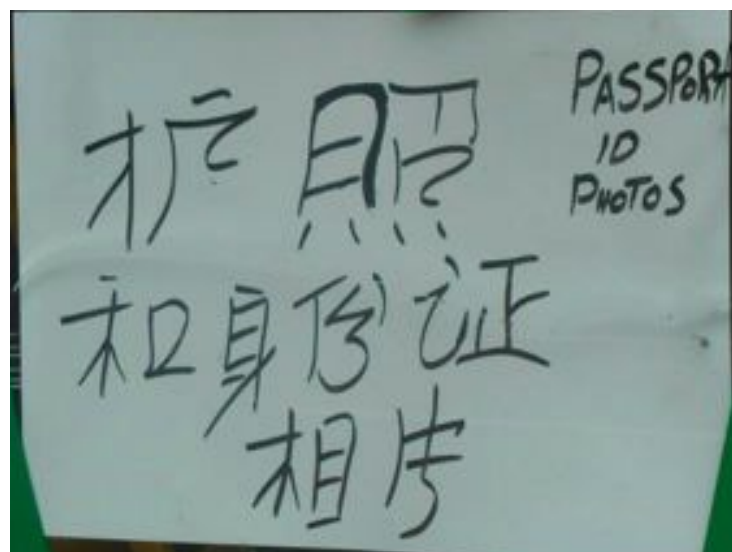 护照
和身份证
相片
PASSPORT
ID
PHOTOS